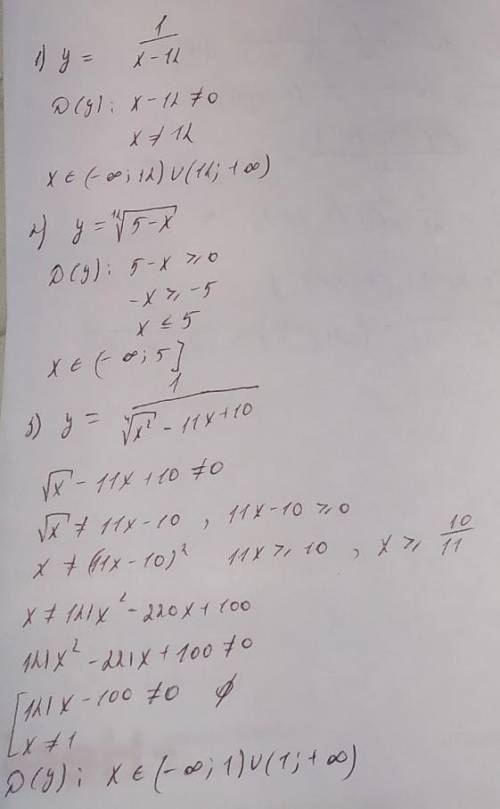 1) y = 1/(x-12)
D(y): x-12 ≠ 0
x ≠ 12
x ∈ (-∞; 12) ∪ (12; +∞)
2) y = ¹²√(5-x)
D(y): 5-x ≥ 0
-x ≥ -5
x ≤ 5
x ∈ (-∞; 5]
3) y = 1/(⁴√(x²) - 11x+10)
√x - 11x+10 ≠ 0
√x ≠ 11x-10, 11x-10 ≥ 0
x ≠ (11x-10)² 11x ≥ 10, x ≥ 10/11
x ≠ 121x² - 220x+100
121x² - 221x+100 ≠ 0
[121x-100 ≠ 0 ∅
x ≠ 1
D(y): x ∈ (-∞; 1) ∪ (1; +∞)